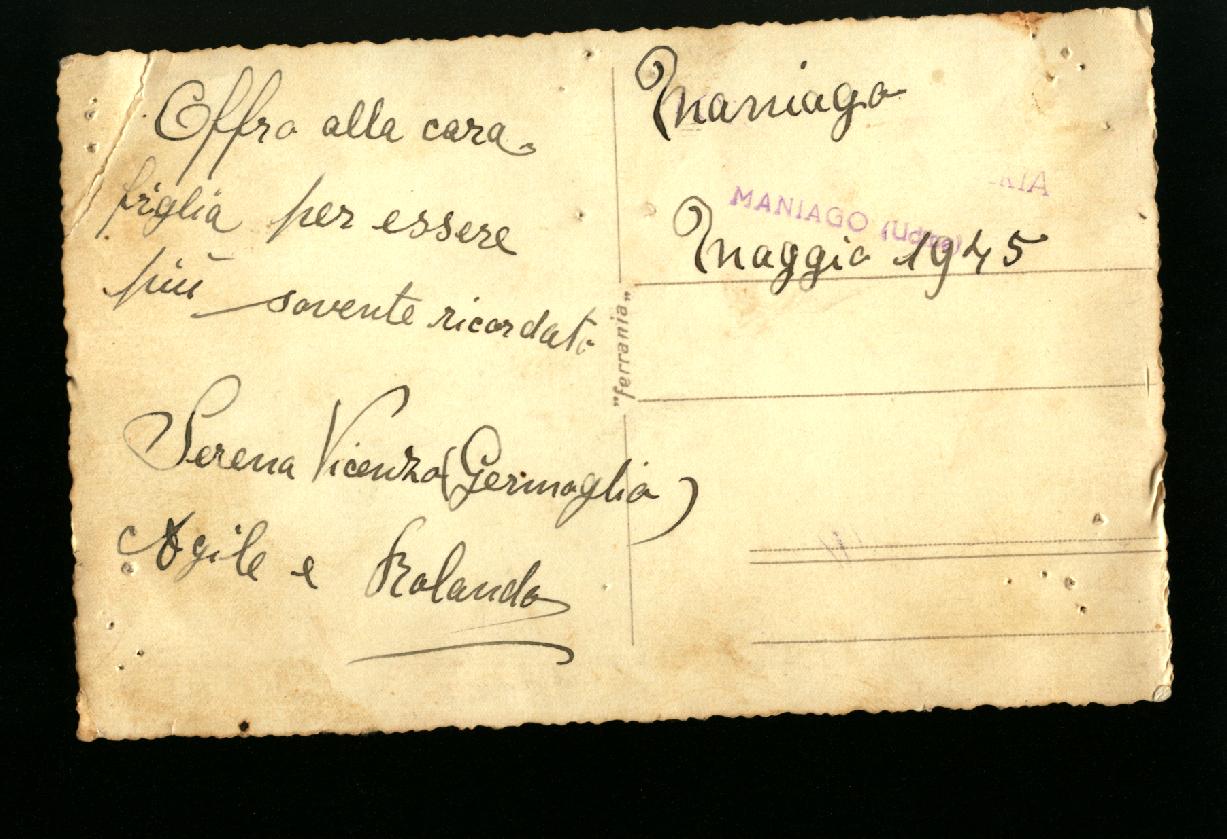 Offro alla cara
figlia per essere
più sovente ricordato
Serena Vicenza (Germaglia)
Agile e Rolando
Maniago
MANIAGO (Udine)
Maggio 1945
"ferrania"